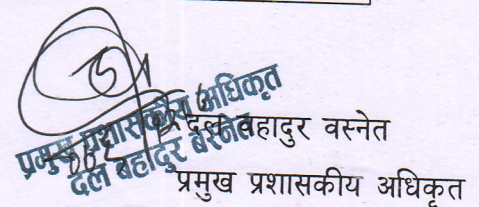 प्रमुख प्रशासकीय अधिकृत
दल बहादुर बस्नेत
दल बहादुर वस्नेत
प्रमुख प्रशासकीय अधिकृत